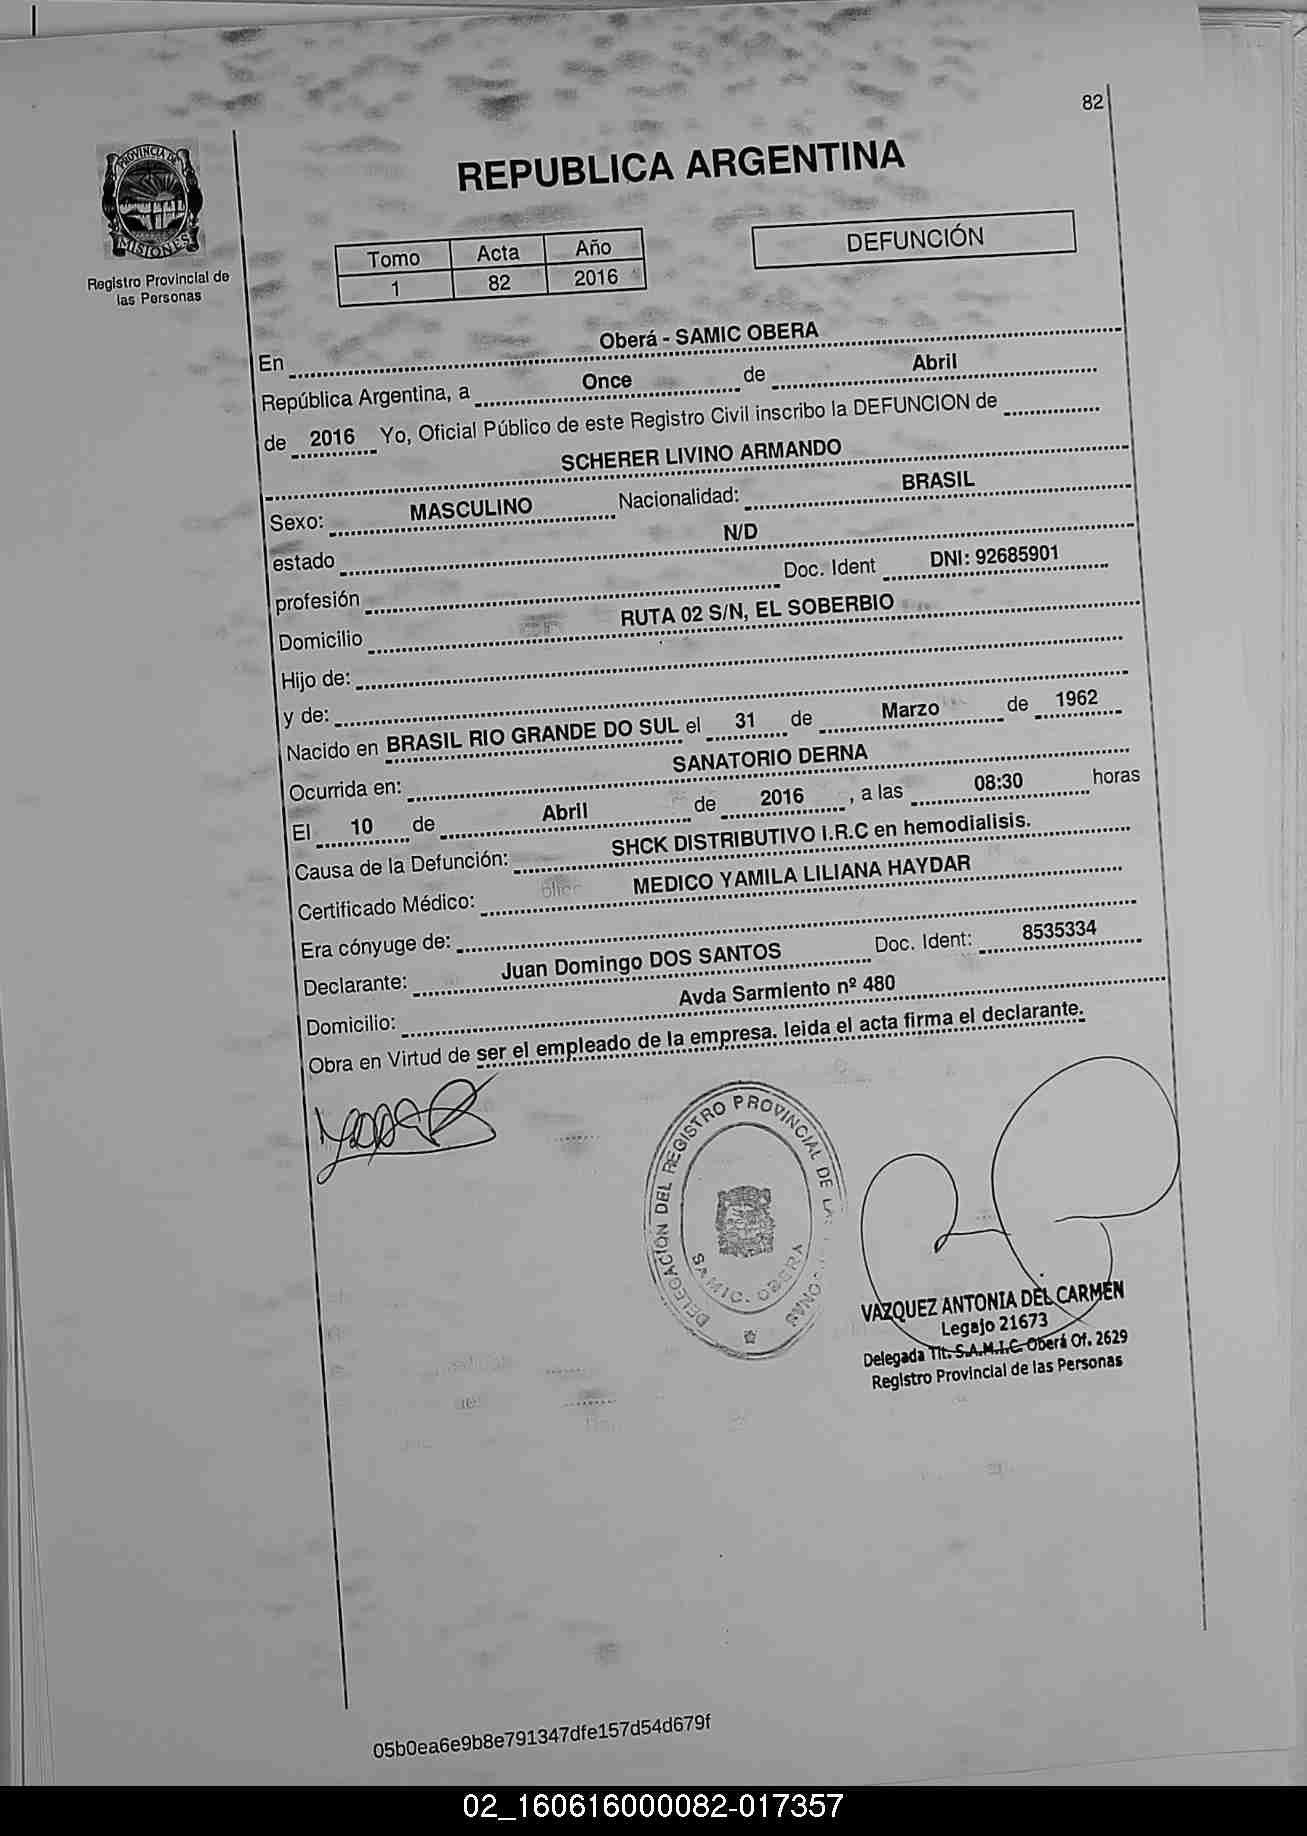 82
PROVINCIA DE
MISIONES
Registro Provincial de
las Personas
REPUBLICA ARGENTINA
Tomo Acta Año
1 82 2016
DEFUNCIÓN
En Oberá - SAMIC OBERA
República Argentina, a Once de Abril
de 2016 Yo, Oficial Público de este Registro Civil inscribo la DEFUNCION de
SCHERER LIVINO ARMANDO
Sexo: MASCULINO Nacionalidad: BRASIL
estado N/D
profesión Doc. Ident DNI: 92685901
Domicilio RUTA 02 S/N, EL SOBERBIO
Hijo de:
y de:
Nacido en BRASIL RIO GRANDE DO SUL el 31 de Marzo de 1962
Ocurrida en: SANATORIO DERNA
El 10 de Abril de 2016 , a las 08:30 horas
Causa de la Defunción: SHCK DISTRIBUTIVO I.R.C en hemodialisis.
Certificado Médico: MEDICO YAMILA LILIANA HAYDAR
Era cónyuge de:
Declarante: Juan Domingo DOS SANTOS Doc. Ident: 8535334
Domicilio: Avda Sarmiento nº 480
Obra en Virtud de ser el empleado de la empresa. leida el acta firma el declarante.
DELEGACIÓN DEL REGISTRO PROVINCIAL DE LAS PERSONAS
SAMIC. OBERA
VAZQUEZ ANTONIA DEL CARMEN
Legajo 21673
Delegada Tit. S.A.M.I.C. Oberá Of. 2629
Registro Provincial de las Personas
05b0ea6e9b8e791347dfe157d54d679f
02_160616000082-017357